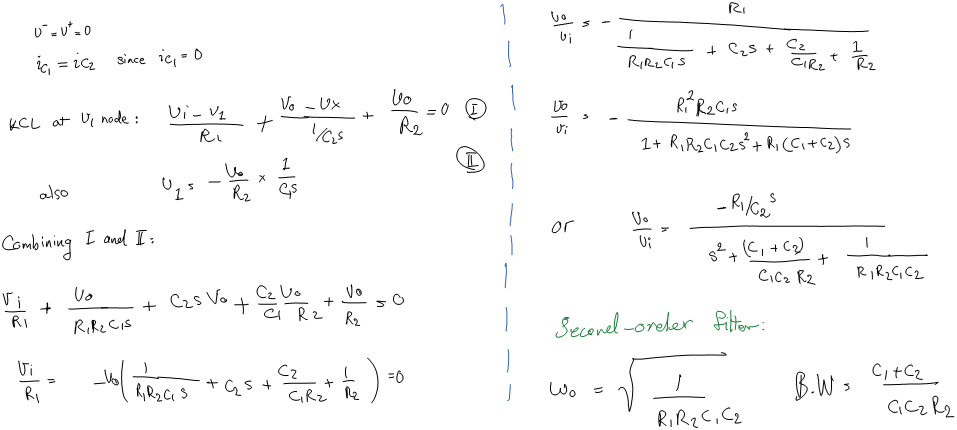 v⁻ = v⁺ = 0
i_C₁ = i_C₂ since i_C₁ = 0
KCL at V₁ node: (Vi − V₁)/R₁ + (Vo − Vx)/(1/C₂S) + Vo/R₂ = 0 (I)
(II)
also V₁ = − Vo/R₂ × 1/(C₁S)
Combining I and II:
Vi/R₁ + Vo/(R₁R₂C₁S) + C₂S Vo + C₂/C₁ Vo/R₂ + Vo/R₂ = 0
Vi/R₁ = −Vo( 1/(R₁R₂C₁S) + C₂S + C₂/(C₁R₂) + 1/R₂ ) = 0
Vo/Vi = − R₁/( 1/(R₁R₂C₁S) + C₂S + C₂/(C₁R₂) + 1/R₂ )
Vo/Vi = − R₁²R₂C₁S/( 1 + R₁R₂C₁C₂S² + R₁(C₁+C₂)S )
or Vo/Vi = −R₁/C₂ S/( S² + (C₁+C₂)/(C₁C₂R₂) + 1/(R₁R₂C₁C₂) )
Second-order filter:
ω₀ = √( 1/(R₁R₂C₁C₂) ) B.W = (C₁+C₂)/(C₁C₂R₂)